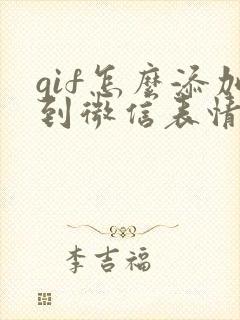 gif怎麼添加
到微信表情
李吉福